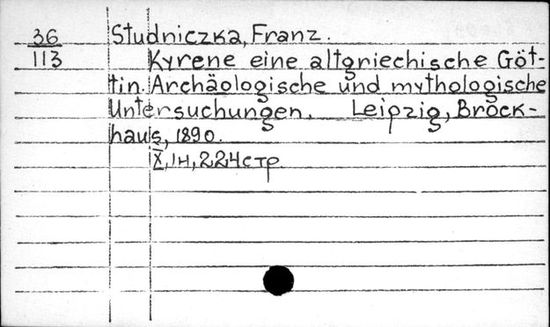 36 Studniczka, Franz.
113 Kyrene eine altgriechische Göt-
tin. Archäologische und mythologische
Untersuchungen. Leipzig, Brock-
haus, 1890.
X, 1н, 224 стр